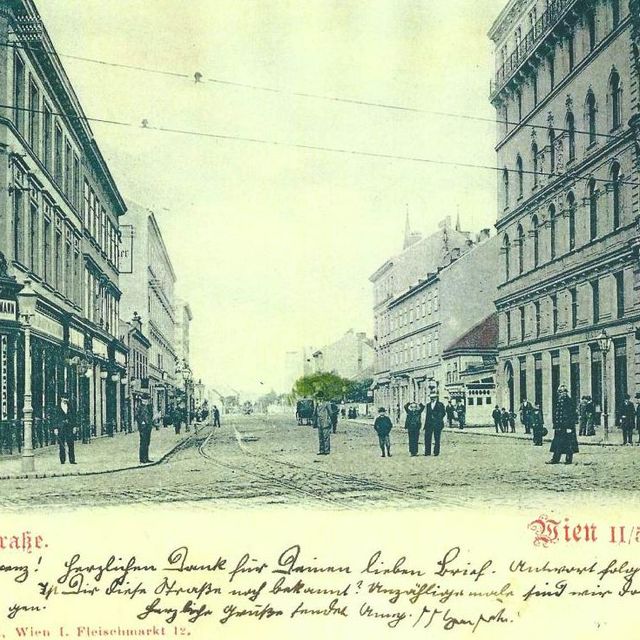 MANN
raße.
Wien II/5
enz! Herzlichen Dank für Deinen lieben Brief. Antwort folg
Ist Dir diese Straße noch bekannt? Unzähligemale sind wir do
gen. Herzliche Grüße sendet
Wien I. Fleischmarkt 12.